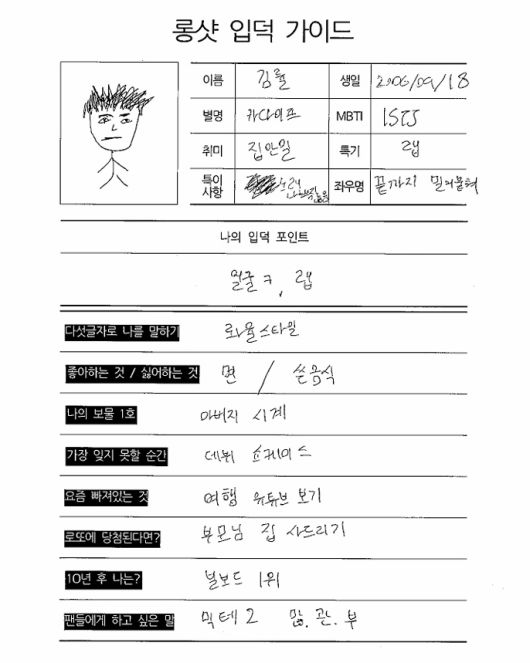 롱샷 입덕 가이드
이름 김률 생일 2006/09/18
별명 카다이프 MBTI ISTJ
취미 집안일 특기 랩
특이사항 노래 좌우명 끝까지 밀어붙여
나의 입덕 포인트
얼굴ㅋ, 랩
다섯글자로 나를 말하기 롸율스타일
좋아하는 것 / 싫어하는 것 면 / 쓴음식
나의 보물 1호 아버지 시계
가장 잊지 못할 순간 데뷔 쇼케이스
요즘 빠져있는 것 여행 유튜브 보기
로또에 당첨된다면? 부모님 집 사드리기
10년 후 나는? 빌보드 1위
팬들에게 하고 싶은 말 믹테 2 많.관.부